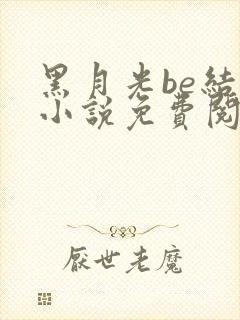 黑月光be結
小說免費閱
厭世老魔